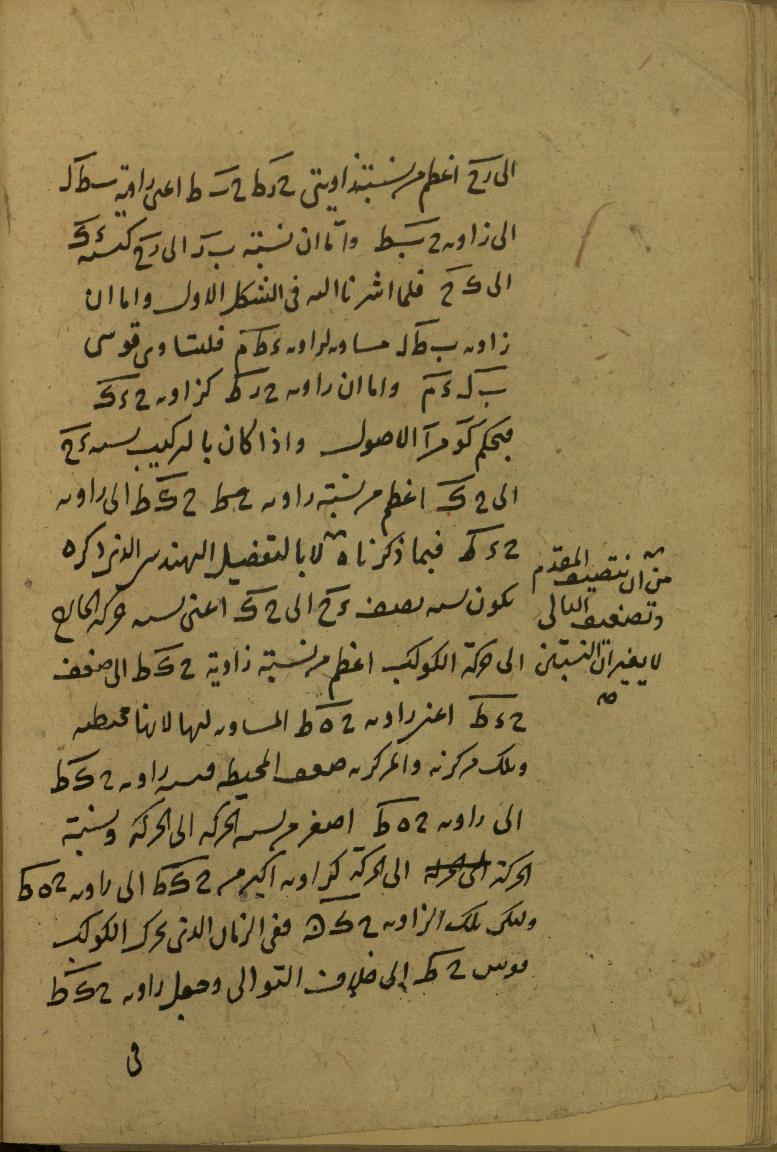 الى رح اعظم من نسبة زاويتى حرط حبط اعنى زاوية بطل
الى زاوية حبط واما ان نسبة بر الى رح كنسبة ءك
الى كح فلما اشرنا اليه فى الشكل الاول واما ان
زاوية بطل مساوية لزاوية ءطم فلتساوى قوسى
بل ءم واما ان زاوية حرط كزاوية حءك
فبحكم كو من آ الاصول واذا كان بالتركيب نسبة ءح
الى حك اعظم من نسبة زاوية حكط الى زاوية
حءط فبما ذكرناه لا بالتفضيل الهندسى الذى ذكره
يكون نسبة نصف ءح الى حك اعنى نسبة حركة الخارج
الى حركة الكوكب اعظم من نسبة زاوية حكط الى ضعف
حءط اعنى زاوية حهط المساوية لها لانها محيطية
وتلك مركزية والمركزية ضعف المحيطية فنسبة زاوية حكط
الى زاوية حهط اصغر من نسبة الحركة الى الحركة ونسبة
الحركة الى الحركة كزاوية اكبر من حكط الى زاوية حهط
وليكن تلك الزاوية حكن ففى الزمان الذى يحرك الكوكب
قوس حط الى خلاف التوالى وحصل زاوية حكط
فى
من ان تنصيف المقدم
وتضعيف التالى
لا يغيران النسبتين
صح